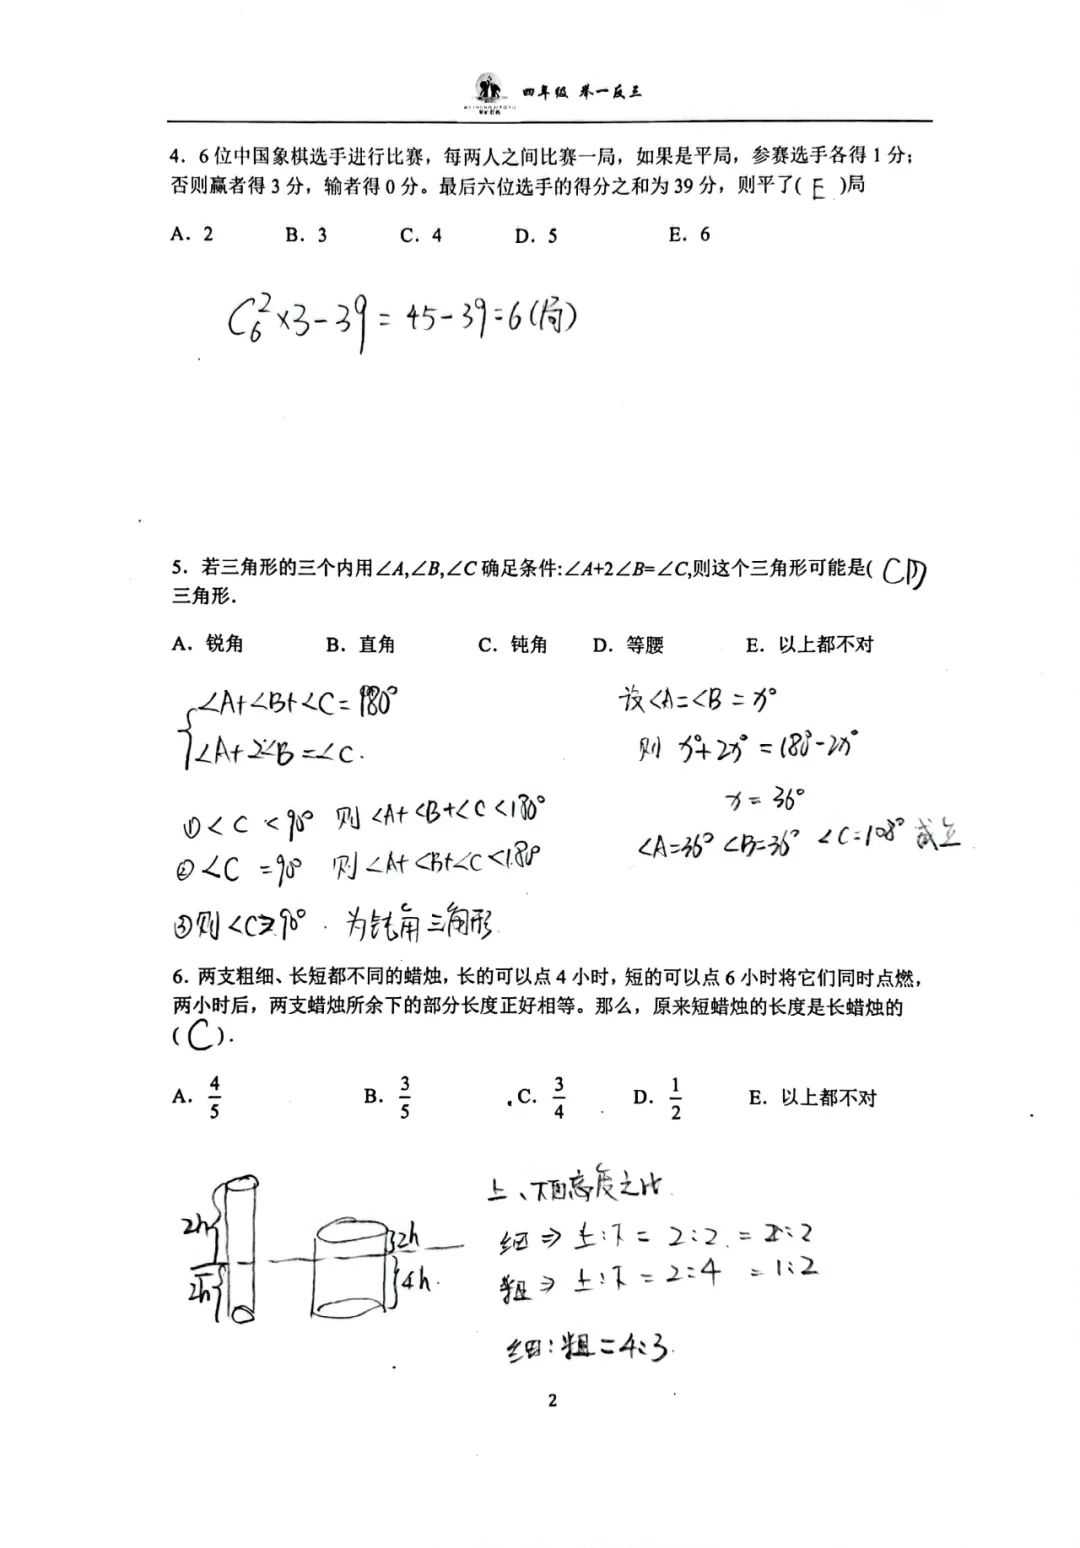 四年级 举一反三
4. 6位中国象棋选手进行比赛，每两人之间比赛一局，如果是平局，参赛选手各得1分；
否则赢者得3分，输者得0分。最后六位选手的得分之和为39分，则平了( E )局
A. 2 B. 3 C. 4 D. 5 E. 6
C₆²×3-39=45-39=6(局)
5. 若三角形的三个内用∠A,∠B,∠C确足条件:∠A+2∠B=∠C,则这个三角形可能是( CD )
三角形.
A. 锐角 B. 直角 C. 钝角 D. 等腰 E. 以上都不对
∠A+∠B+∠C=180°
∠A+2∠B=∠C.
①∠C<90° 则∠A+∠B+∠C<180°
②∠C=90° 则∠A+∠B+∠C<180°
③则∠C>90°. 为钝角三角形
设∠A=∠B=x°
则 x°+2x°=180°-2x°
x=36°
∠A=36° ∠B=36° ∠C=108° 成立
6. 两支粗细、长短都不同的蜡烛，长的可以点4小时，短的可以点6小时将它们同时点燃，
两小时后，两支蜡烛所余下的部分长度正好相等。那么，原来短蜡烛的长度是长蜡烛的
( C ).
A. 4/5 B. 3/5 C. 3/4 D. 1/2 E. 以上都不对
2h
2h
2h
4h.
上、下面高度之比.
细⇒上:下=2:2=2:2
粗⇒上:下=2:4=1:2
细:粗=4:3.
2